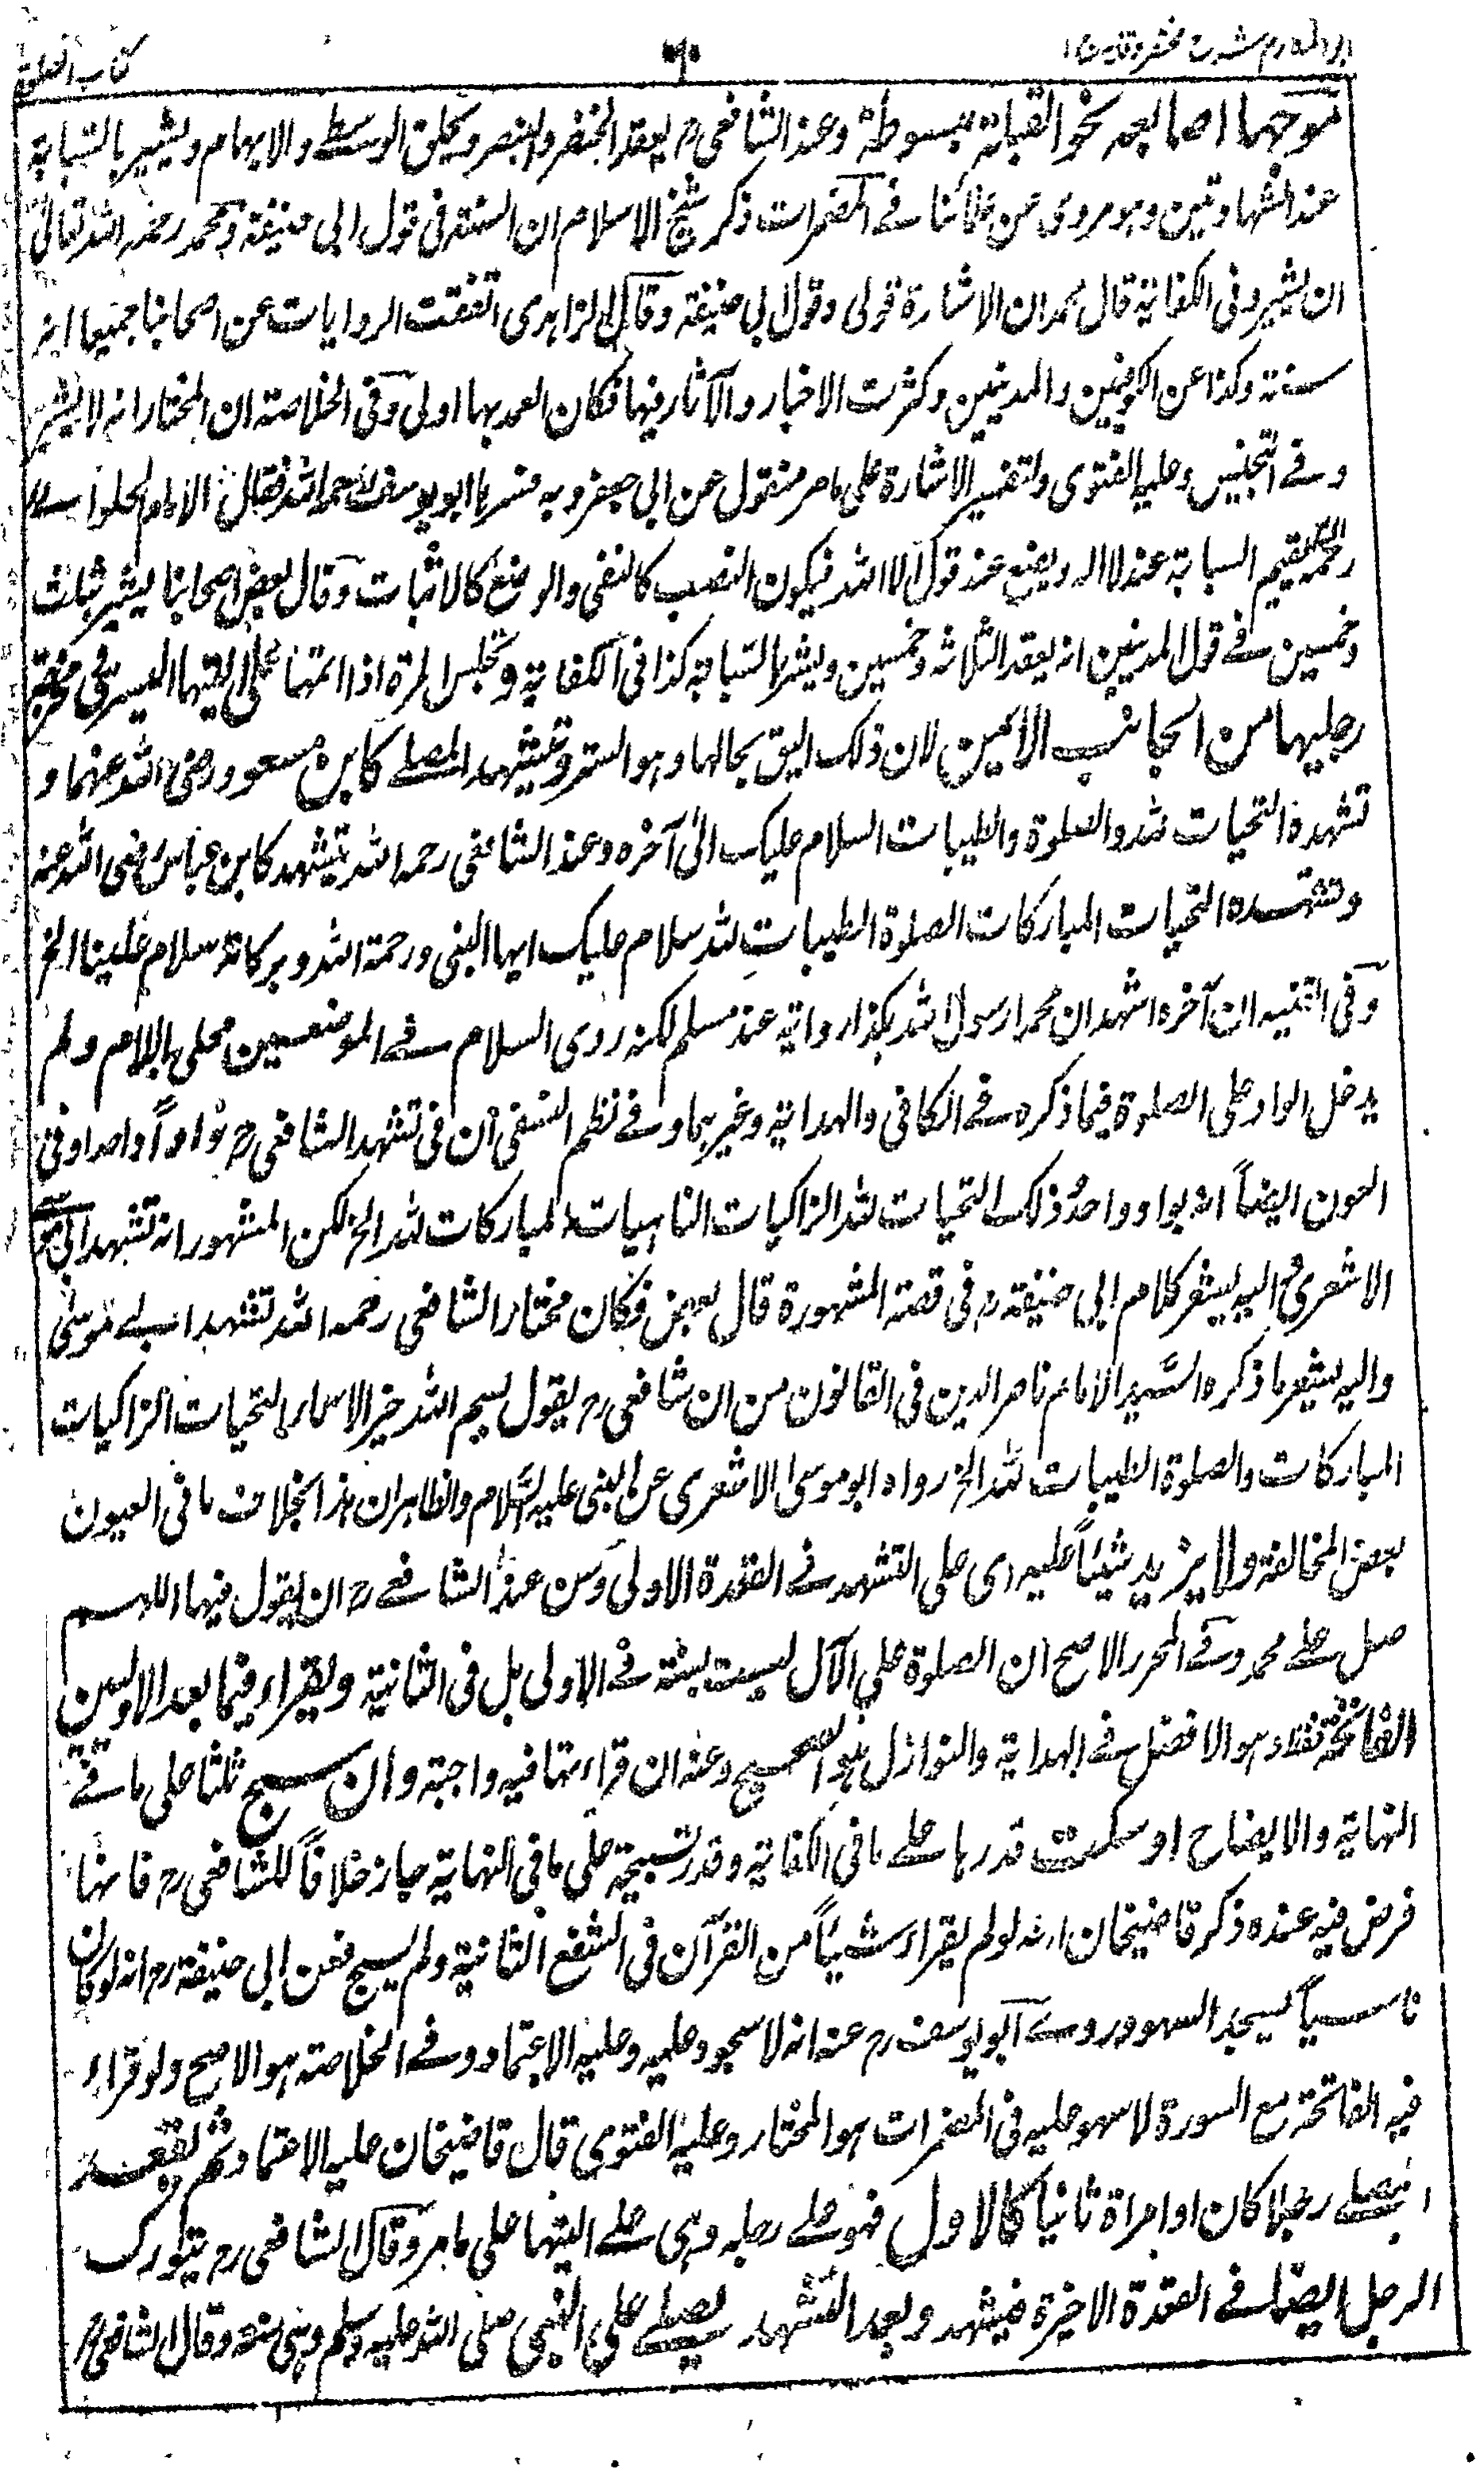 ابو المكارم شرح مختصر وقايه
كتاب الصلوة
موجها اصابعه نحو القبلة مبسوطة وعند الشافعي رح يعقد الخنصر والبنصر ويحلق الوسطى والابهام ويشير بالسبابة
عند الشهادتين وهو مروى عن علمائنا في المضمرات ذكر شيخ الاسلام ان السنة في قول ابي حنيفة ومحمد رحمه الله تعالى
ان يشير وفى الكفاية قال محمد ان الاشارة قولى وقول ابي حنيفة وقال الزاهدى اتفقت الروايات عن اصحابنا جميعا انه
سنة وكذا عن الكوفيين والمدنيين وكثرت الاخبار والآثار فيها فكان العمل بها اولى وفى الخلاصة ان المختار انه لا يشير
وفي التجنيس وعليه الفتوى وتفسير الاشارة على ما مر منقول عن ابي جعفر وبه فسرها ابو يوسف رحمه الله فقال الامام الحلوانى
رحمه الله يقيم السبابة عند لا اله ويضع عند قوله الا الله فيكون النصب كالنفى والوضع كالاثبات وقال بعض اصحابنا يشير بثلث
وخمسين في قول المدنيين انه يعقد الثلاثة وخمسين ويشير بالسبابة كذا فى الكفاية وتجلس المرأة اذا اتمتها على اليتها اليسرى مخرجة
رجليها من الجانب الايمن لان ذلك اليق بحالها وهو الستر ويتشهد المصلے كابن مسعود رضى الله عنهما و
تشهده التحيات لله والصلوة والطيبات السلام عليك الى آخره وعند الشافعى رحمه الله يتشهد كابن عباس رضى الله عنه
وتشهده التحيات المباركات الصلوة الطيبات لله سلام عليك ايها النبى ورحمة الله وبركاته سلام علينا الخ
وفى التنبيه ان آخره اشهد ان محمدا رسول الله هكذا رواية عند مسلم لكنه روى السلام فے الموضعين محلى باللام ولم
يدخل الواو على الصلوة فيما ذكره فے الكافى والهداية وغيرهما وفے نظم النسفى ان فى تشهد الشافعى رح واواً واحدا وفى
العون ايضاً انه بواو واحد وذلك التحيات لله الزاكيات الناميات المباركات لله الخ لكن المشهور انه تشهد ابى موسى
الاشعرى واليه يشير كلام ابى حنيفة رح فى قصته المشهورة قال بعض فكان مختار الشافعى رحمه الله تشهد ابى موسى
واليه يشعر ما ذكره السيد الامام ناصر الدين فى القانون من ان شافعى رح يقول بسم الله خير الاسماء التحيات الزاكيات
المباركات والصلوة الطيبات لله الخ رواه ابو موسى الاشعرى عن النبى عليه السلام والظاهر ان هذا بخلاف ما فى العيون
بعض المخالفة ولا يزيد شيئاً عليه اى على التشهد فے القعدة الاولى وسن عند الشافعے رح ان يقول فيها اللهم
صل علے محمد وفے المحرر الاصح ان الصلوة على الآل ليست بسنة فے الاولى بل فى الثانية ويقراء فيما بعد الاوليين
الفاتحة فقط وهو الافضل فے الهداية والنوازل هو الصحيح وعنه ان قراءتها فيه واجبة وان سبح ثلثا على ما فے
النهاية والايضاح او سكت قدرها علے ما فى الكفاية وقدر تسبيحة على ما فى النهاية جاز خلافاً للشافعى رح فانها
فرض فيه عنده ذكر قاضيخان انه لو لم يقراء شيئاً من القرآن فى الشفع الثانية ولم يسبح فعن ابى حنيفة رح انه لو كان
ناسياً يسجد السهو وروے ابو يوسف رح عنه انه لا سجود عليه وعليه الاعتماد وفے الخلاصة هو الاصح ولو قراء
فيه الفاتحة مع السورة لا سهو عليه فى المضمرات هو المختار وعليه الفتوى قال قاضيخان عليه الاعتماد ثم يقعد
المصلے رجلا كان او امراة ثانيا كالاول فهو علے رجله وهى علے اليتها على ما مر وقال الشافعى رح يتورك
الرجل ايضا فے القعدة الاخيرة فيتشهد وبعد التشهد يصلے على النبى صلى الله عليه وسلم وهى سنة وقال الشافعى رح